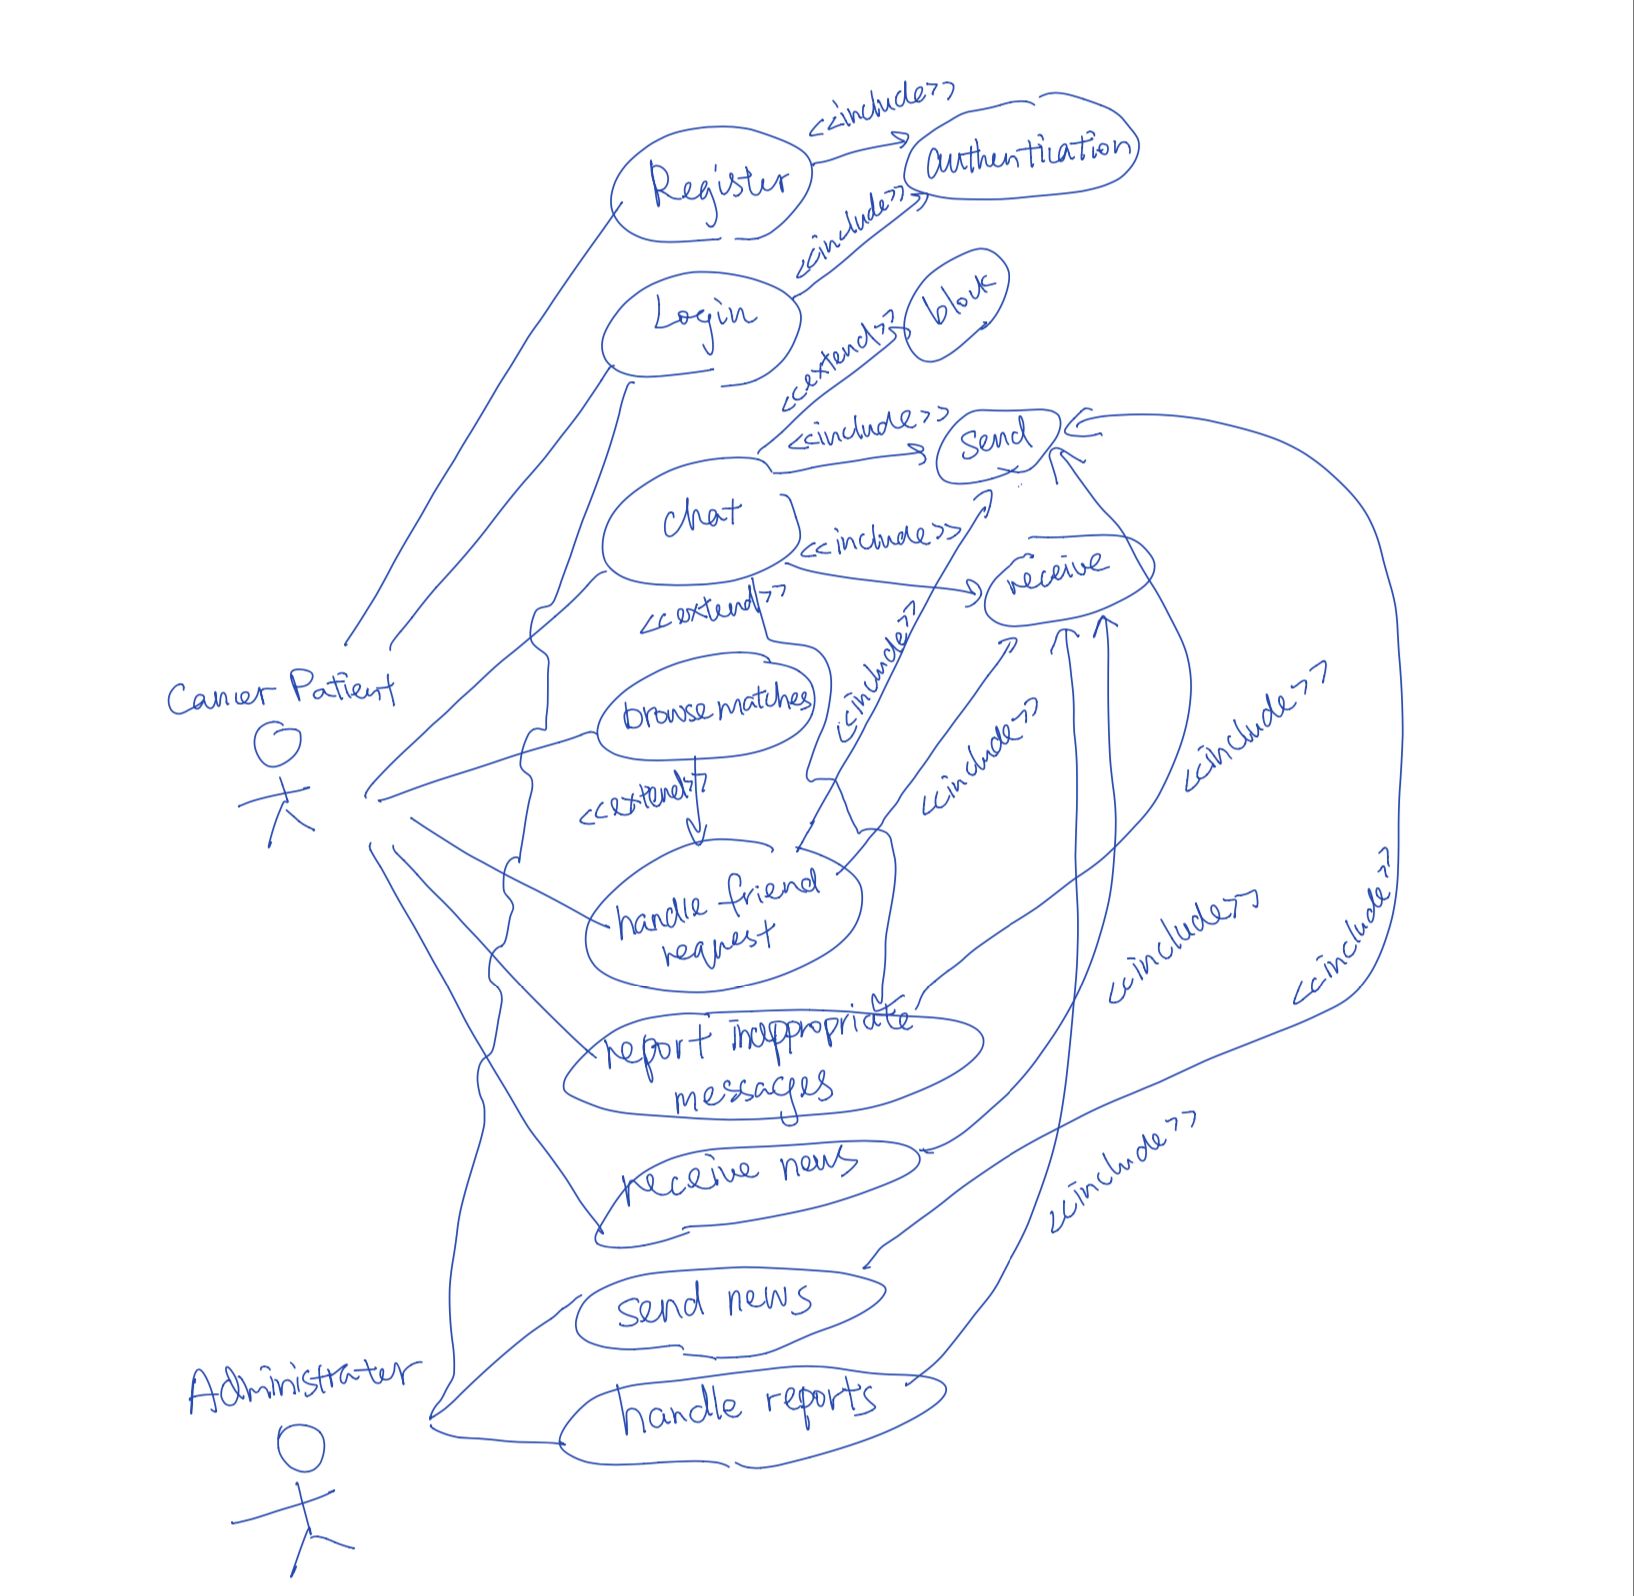 <<include>>
authentication
Register
<<include>>
Login
block
<<extend>>
<<include>>
send
chat
<<include>>
receive
<<extend>>
<<include>>
Cancer Patient
browse matches
<<include>>
<<include>>
<<extend>>
handle friend
request
<<include>>
<<include>>
report inappropriate
messages
<<include>>
receive news
send news
Administrater
handle reports